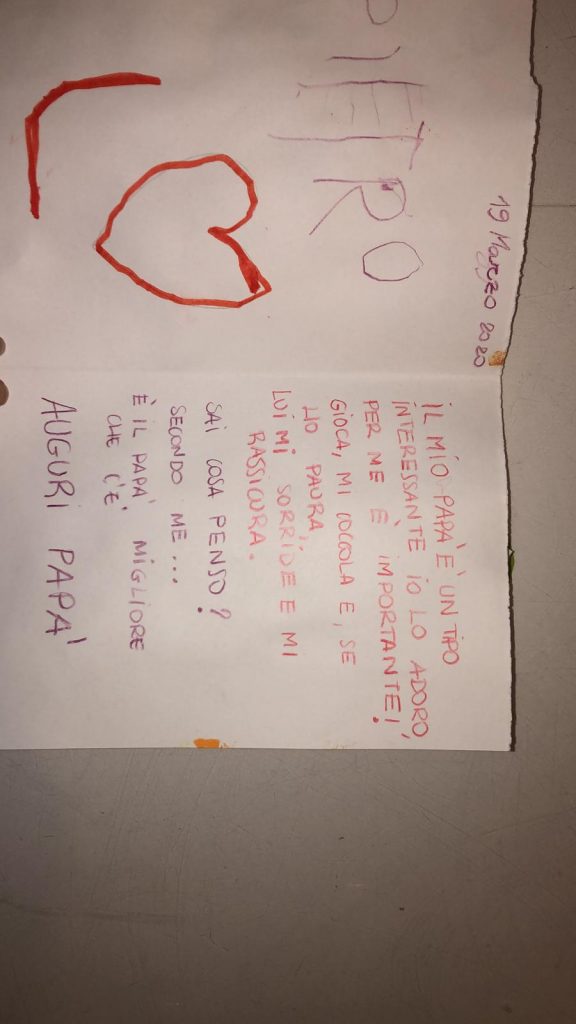 19 Marzo 2020
PIETRO
IL MIO PAPA' E' UN TIPO
INTERESSANTE IO LO ADORO,
PER ME E' IMPORTANTE!
GIOCA, MI COCCOLA E, SE
HO PAURA,
LUI MI SORRIDE E MI
RASSICURA.
SAI COSA PENSO?
SECONDO ME...
È IL PAPA' MIGLIORE
CHE C'È
AUGURI PAPA'